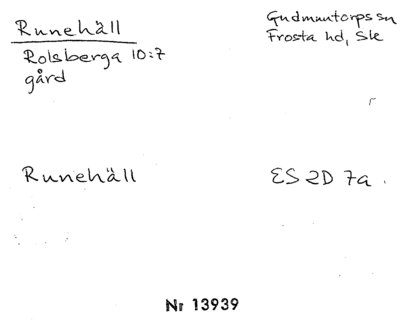 Runehäll
Gudmuntorps sn
Frosta hd, Sk
Rolsberga 10:7
gård
Runehäll
ES 2D 7a.
Nr 13939